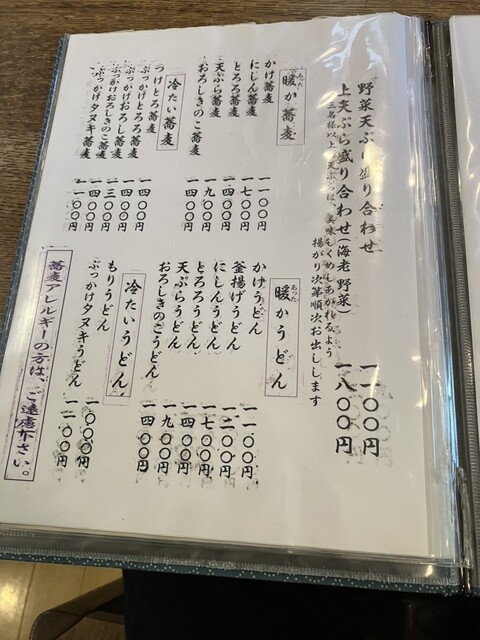 野菜天ぷら盛り合わせ 一一〇〇円
上天ぷら盛り合わせ(海老 野菜) 一八〇〇円
三名様以上の天ぷらは、美味しくめしあがれるよう
揚がり次第順次お出しします
暖か蕎麦
あった
かけ蕎麦 一一〇〇円
にしん蕎麦 一七〇〇円
とろろ蕎麦 一四〇〇円
天ぷら蕎麦 一九〇〇円
おろしきのこ蕎麦 一四〇〇円
冷たい蕎麦
つけとろ蕎麦 一四〇〇円
ぶっかけとろ蕎麦 一四〇〇円
ぶっかけおろし蕎麦 一三〇〇円
ぶっかけおろしきのこ蕎麦 一四〇〇円
ぶっかけタヌキ蕎麦
暖かうどん
あった
かけうどん 一一〇〇円
釜揚げうどん 一二〇〇円
にしんうどん 一七〇〇円
とろろうどん 一四〇〇円
天ぷらうどん 一九〇〇円
おろしきのこうどん 一四〇〇円
冷たいうどん
もりうどん 一〇〇〇円
ぶっかけタヌキうどん 一二〇〇円
蕎麦アレルギーの方は、ご遠慮下さい。